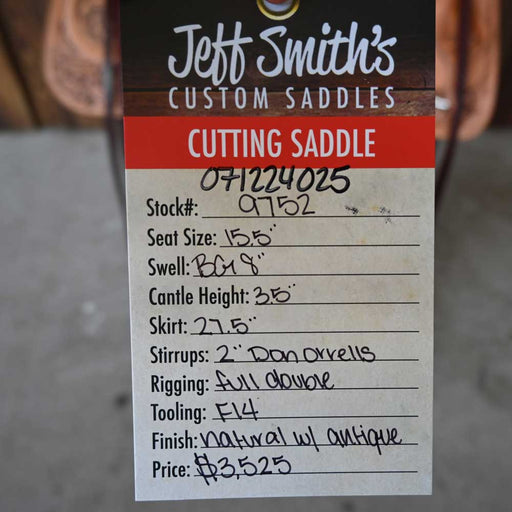 Jeff Smith's
CUSTOM SADDLES
CUTTING SADDLE
071224025
Stock#: 9752
Seat Size: 15.5"
Swell: BGM 8"
Cantle Height: 3.5"
Skirt: 27.5"
Stirrups: 2" Don Orrells
Rigging: full double
Tooling: F14
Finish: natural w/ antique
Price: $3,525